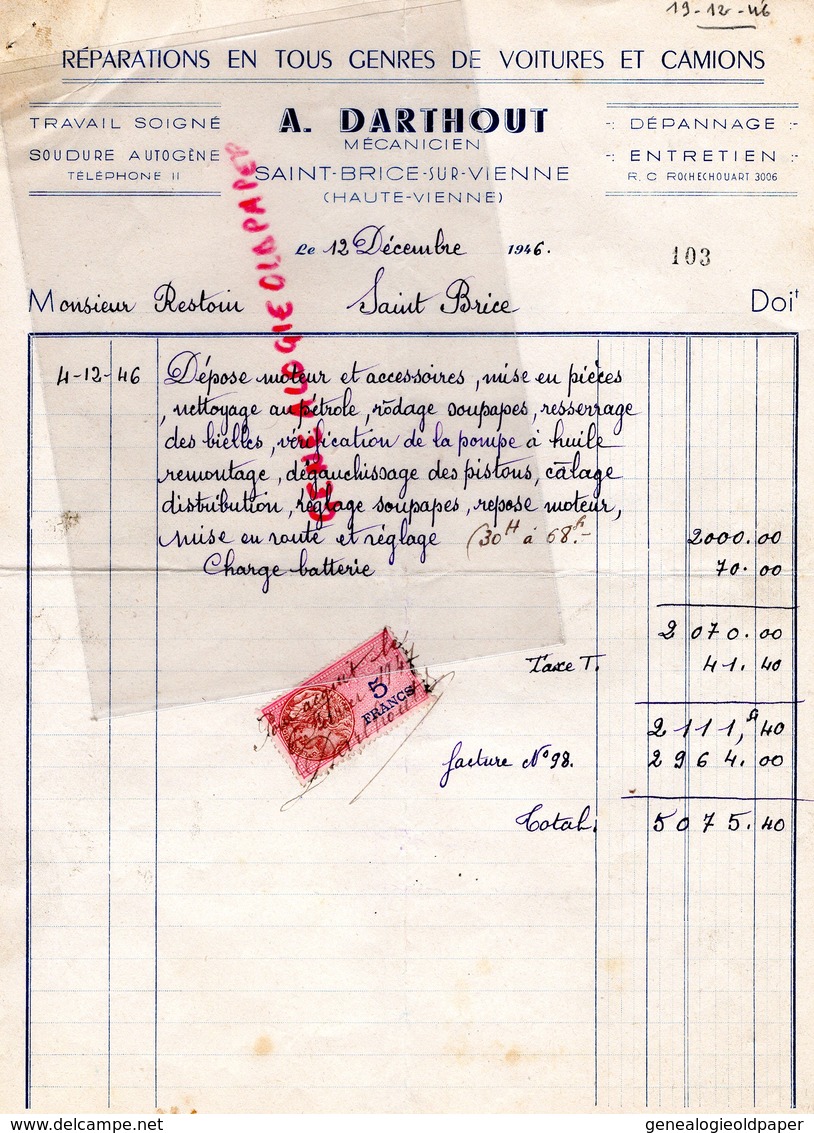 19-12-46
RÉPARATIONS EN TOUS GENRES DE VOITURES ET CAMIONS
TRAVAIL SOIGNÉ
SOUDURE AUTOGÈNE
TÉLÉPHONE 11
A. DARTHOUT
MÉCANICIEN
SAINT-BRICE-SUR-VIENNE
(HAUTE-VIENNE)
-: DÉPANNAGE :-
-: ENTRETIEN :-
R. C ROCHECHOUART 3006
Le 12 Décembre 1946. 103
Monsieur Restoin Saint Brice Doit
4-12-46 Dépose moteur et accessoires, mise en pièces
, nettoyage au pétrole, rodage soupapes, resserrage
des bielles, vérification de la pompe à huile
remontage, dégauchissage des pistons, calage
distribution, réglage soupapes, repose moteur,
mise en route et réglage (30H à 68.- 2000.00
Charge batterie 70.00
2070.00
Taxe T. 41.40
2111,40
facture N° 98. 2964.00
Total. 5075.40
Pour acquit le
1947
5
FRANCS
GENEALOGIE OLAPAPER
delcampe.net
genealogieoldpaper